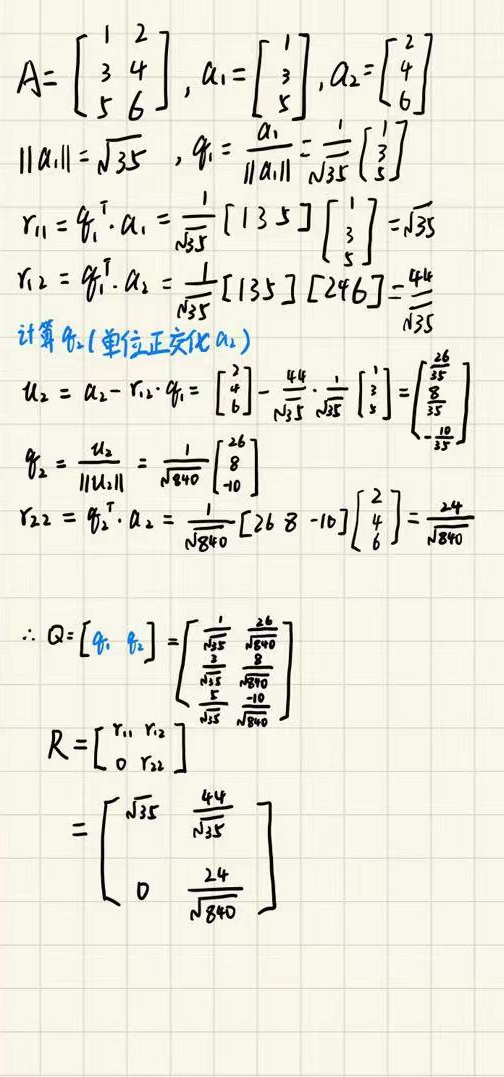 A = [1 2; 3 4; 5 6], a₁ = [1; 3; 5], a₂ = [2; 4; 6]
||a₁|| = √35, q₁ = a₁/||a₁|| = 1/√35 [1; 3; 5]
r₁₁ = q₁ᵀ·a₁ = 1/√35 [1 3 5] [1; 3; 5] = √35
r₁₂ = q₁ᵀ·a₂ = 1/√35 [1 3 5] [2 4 6] = 44/√35
计算 q₂ (单位正交化 a₂)
u₂ = a₂ - r₁₂·q₁ = [2; 4; 6] - 44/√35 · 1/√35 [1; 3; 5] = [26/35; 8/35; -10/35]
q₂ = u₂/||u₂|| = 1/√840 [26; 8; -10]
r₂₂ = q₂ᵀ·a₂ = 1/√840 [26 8 -10] [2; 4; 6] = 24/√840
∴ Q = [q₁ q₂] = [1/√35 26/√840; 3/√35 8/√840; 5/√35 -10/√840]
R = [r₁₁ r₁₂; 0 r₂₂]
= [√35 44/√35; 0 24/√840]